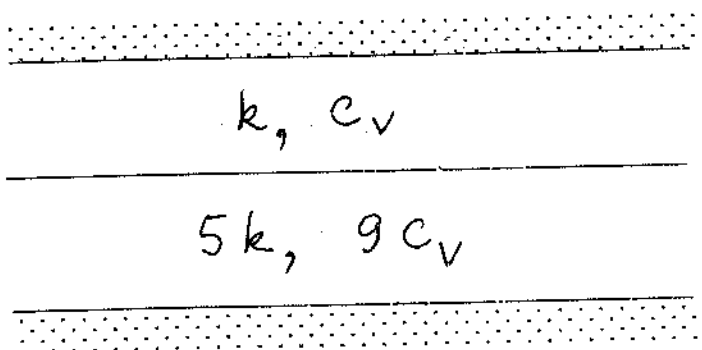 k, c_v
5k, 9c_v